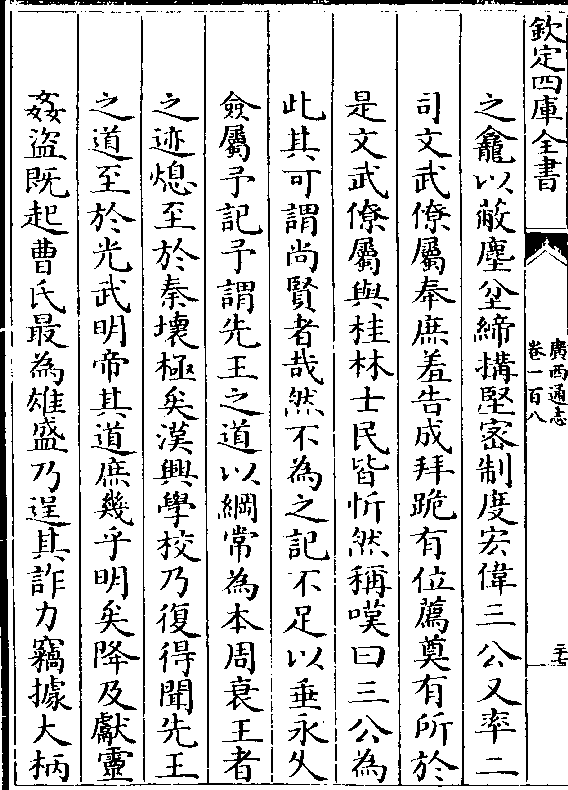 欽定四庫全書
廣西通志
卷一百八
二十七
之龕以蔽塵坌締搆堅宻制度宏偉三公又率二
司文武僚屬奉庶羞告成拜跪有位薦奠有所於
是文武僚屬與桂林士民皆忻然稱嘆曰三公為
此其可謂尚賢者哉然不為之記不足以垂永久
僉屬予記予謂先王之道以綱常為本周衰王者
之迹熄至於秦壊極矣漢興學校乃復得聞先王
之道至於光武明帝其道庶幾乎明矣降及獻靈
姦盜既起曹氏最為雄盛乃逞其詐力竊據大柄